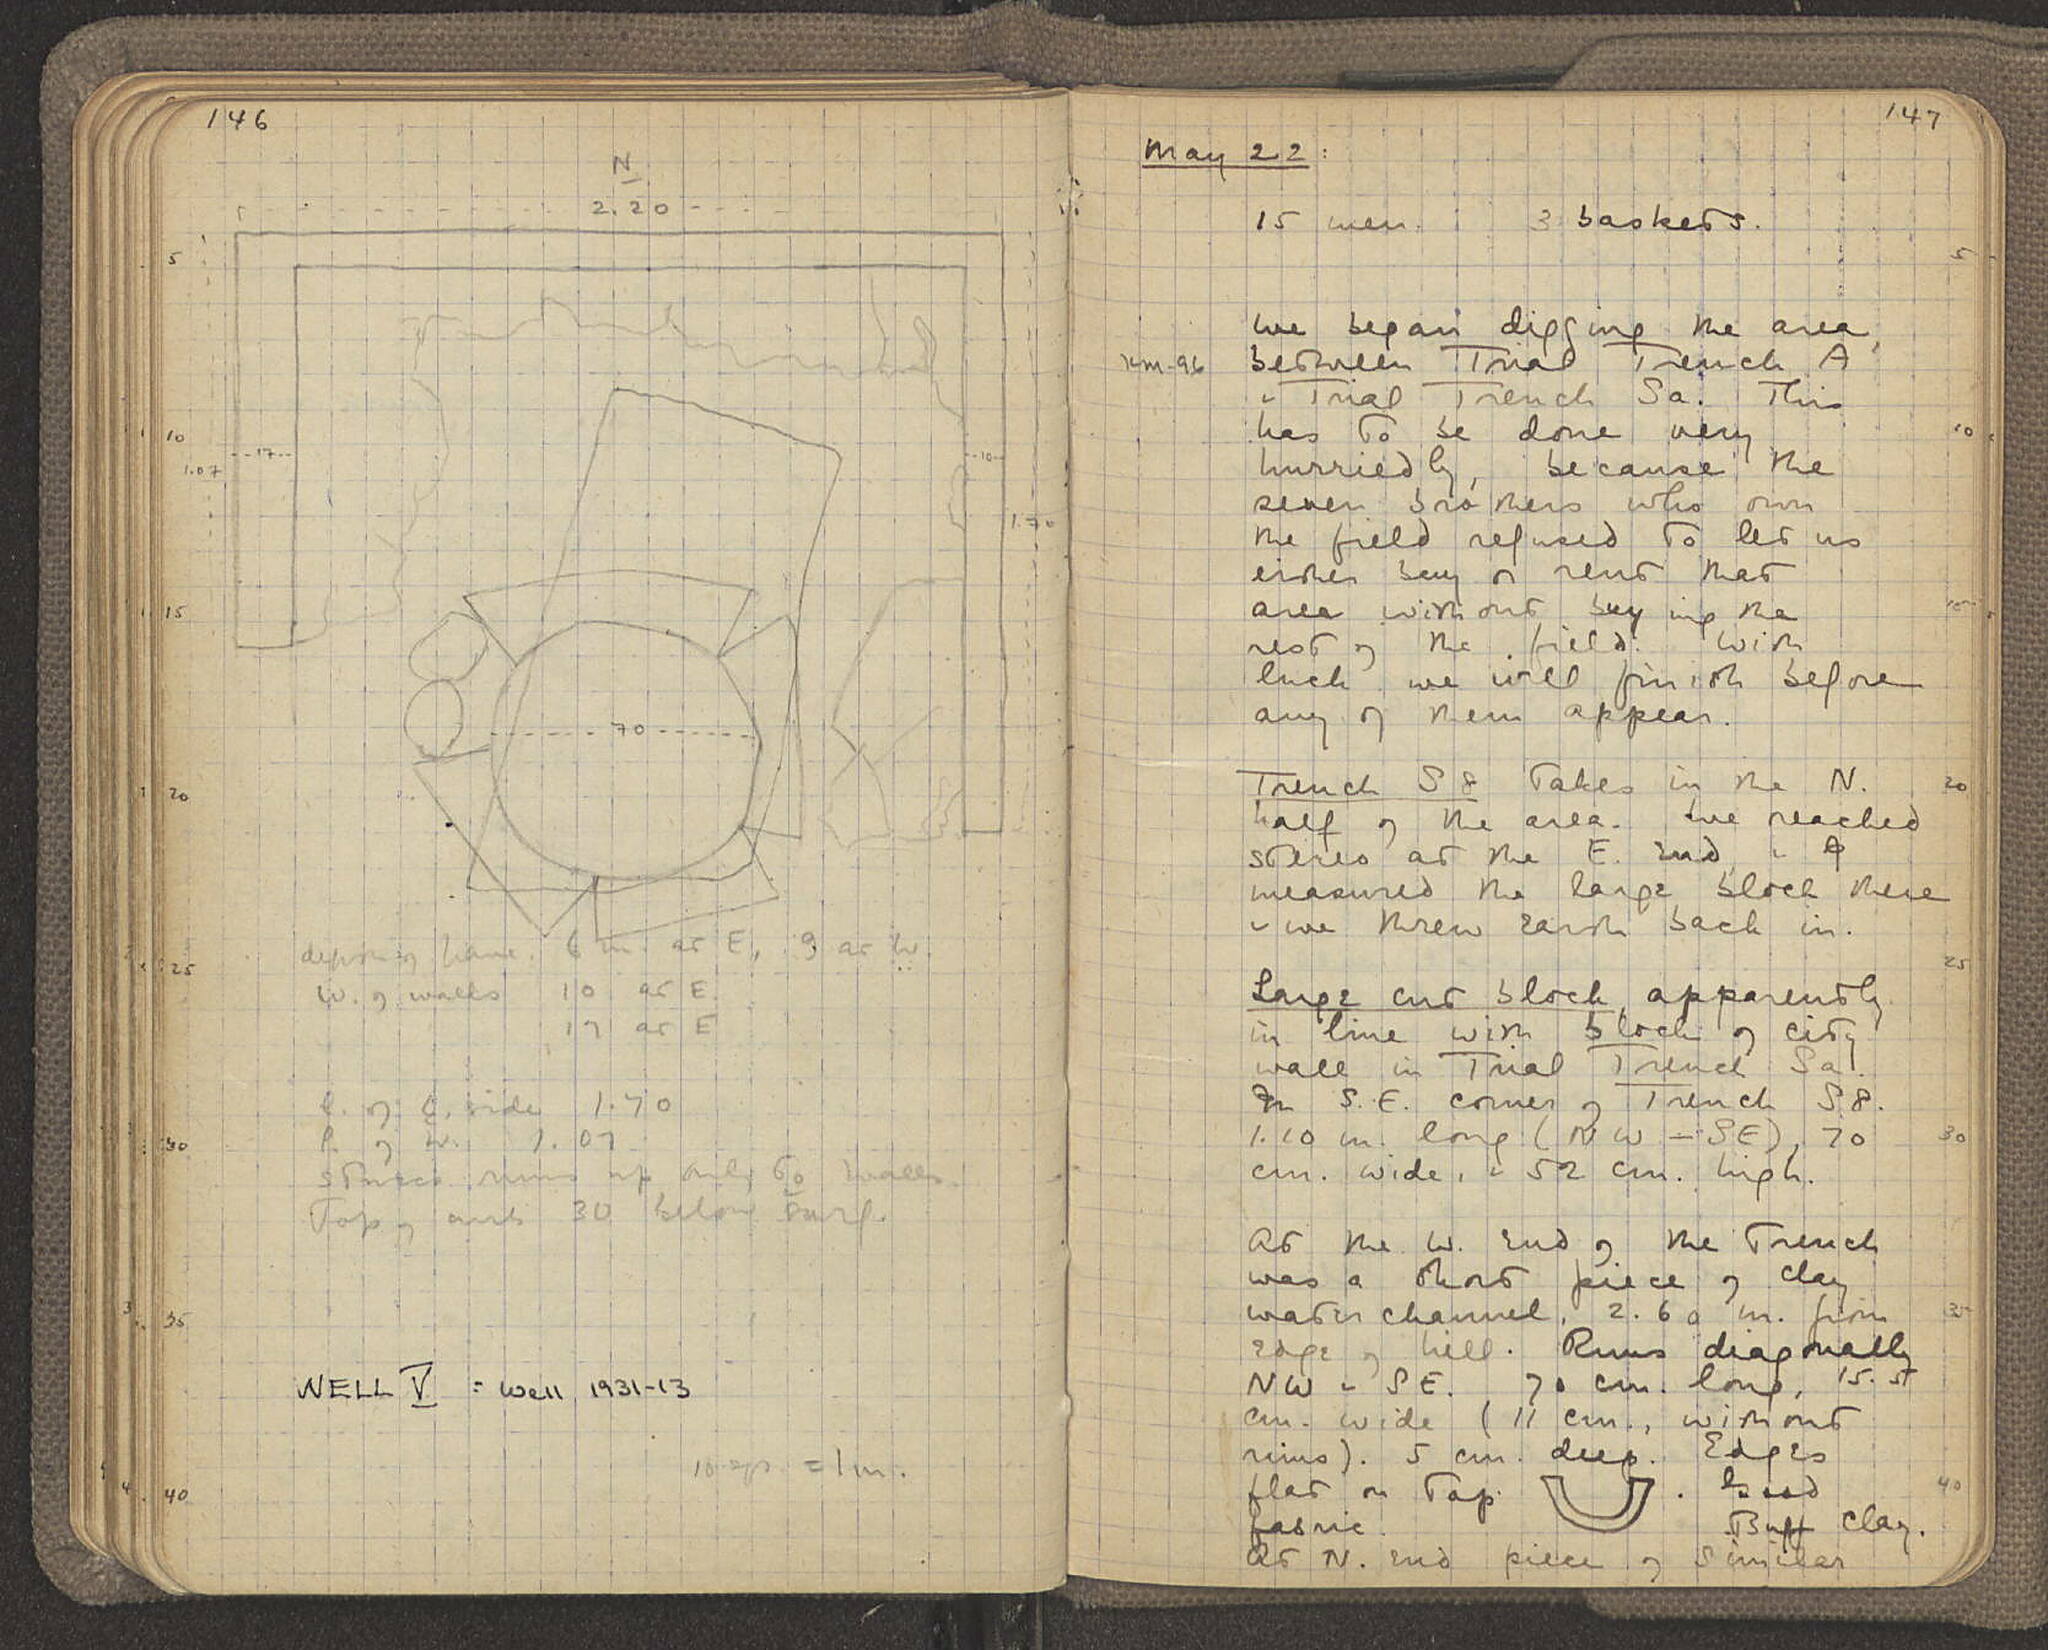 146
N
2.20
5
10
1.07
17
10
1.70
15
70
20
25
depth of 6 m. at E, 9 at W.
W. of walls 10 at E.
17 at E
l. of E. side 1.70
l. of W. 1.07
30
stucco runs up only to walls.
Top of curb 30 below surf.
35
WELL V = Well 1931-13
= 1 m.
40
147
May 22:
15 men. 3 baskets.
5
We began digging the area
KM-96 between Trial Trench A
& Trial Trench Sa. This
has to be done very
10
hurriedly, because the
seven brothers who own
the field refused to let us
either buy or rent that
area without buying the
15
rest of the field. With
luck we will finish before
any of them appear.
Trench S8 takes in the N.
20
half of the area. We reached
stereo at the E. end, &
measured the large block there
& we threw earth back in.
25
Large cut block, apparently
in line with block of city
wall in Trial Trench Sa.
In S.E. corner of Trench S8.
1.10 m. long (NW – SE), 70
30
cm. wide, & 52 cm. high.
At the W. end of the trench
was a short piece of clay
water channel, 2.60 m. from
35
edge of hill. Runs diagonally
NW & SE. 70 cm. long, 15.5
cm. wide (11 cm., without
rims). 5 cm. deep. Edges
flat on top. Good
40
fabric. Buff clay.
At N. end piece of similar